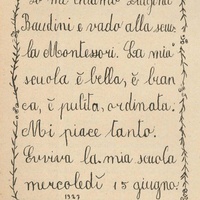 Io mi chiamo Eugenia
Bandini e vado alla scuo
la Montessori. La mia
scuola è bella, è bian
ca, è pulita, ordinata.
Mi piace tanto.
Evviva la mia scuola
mercoledì 15 giugno.